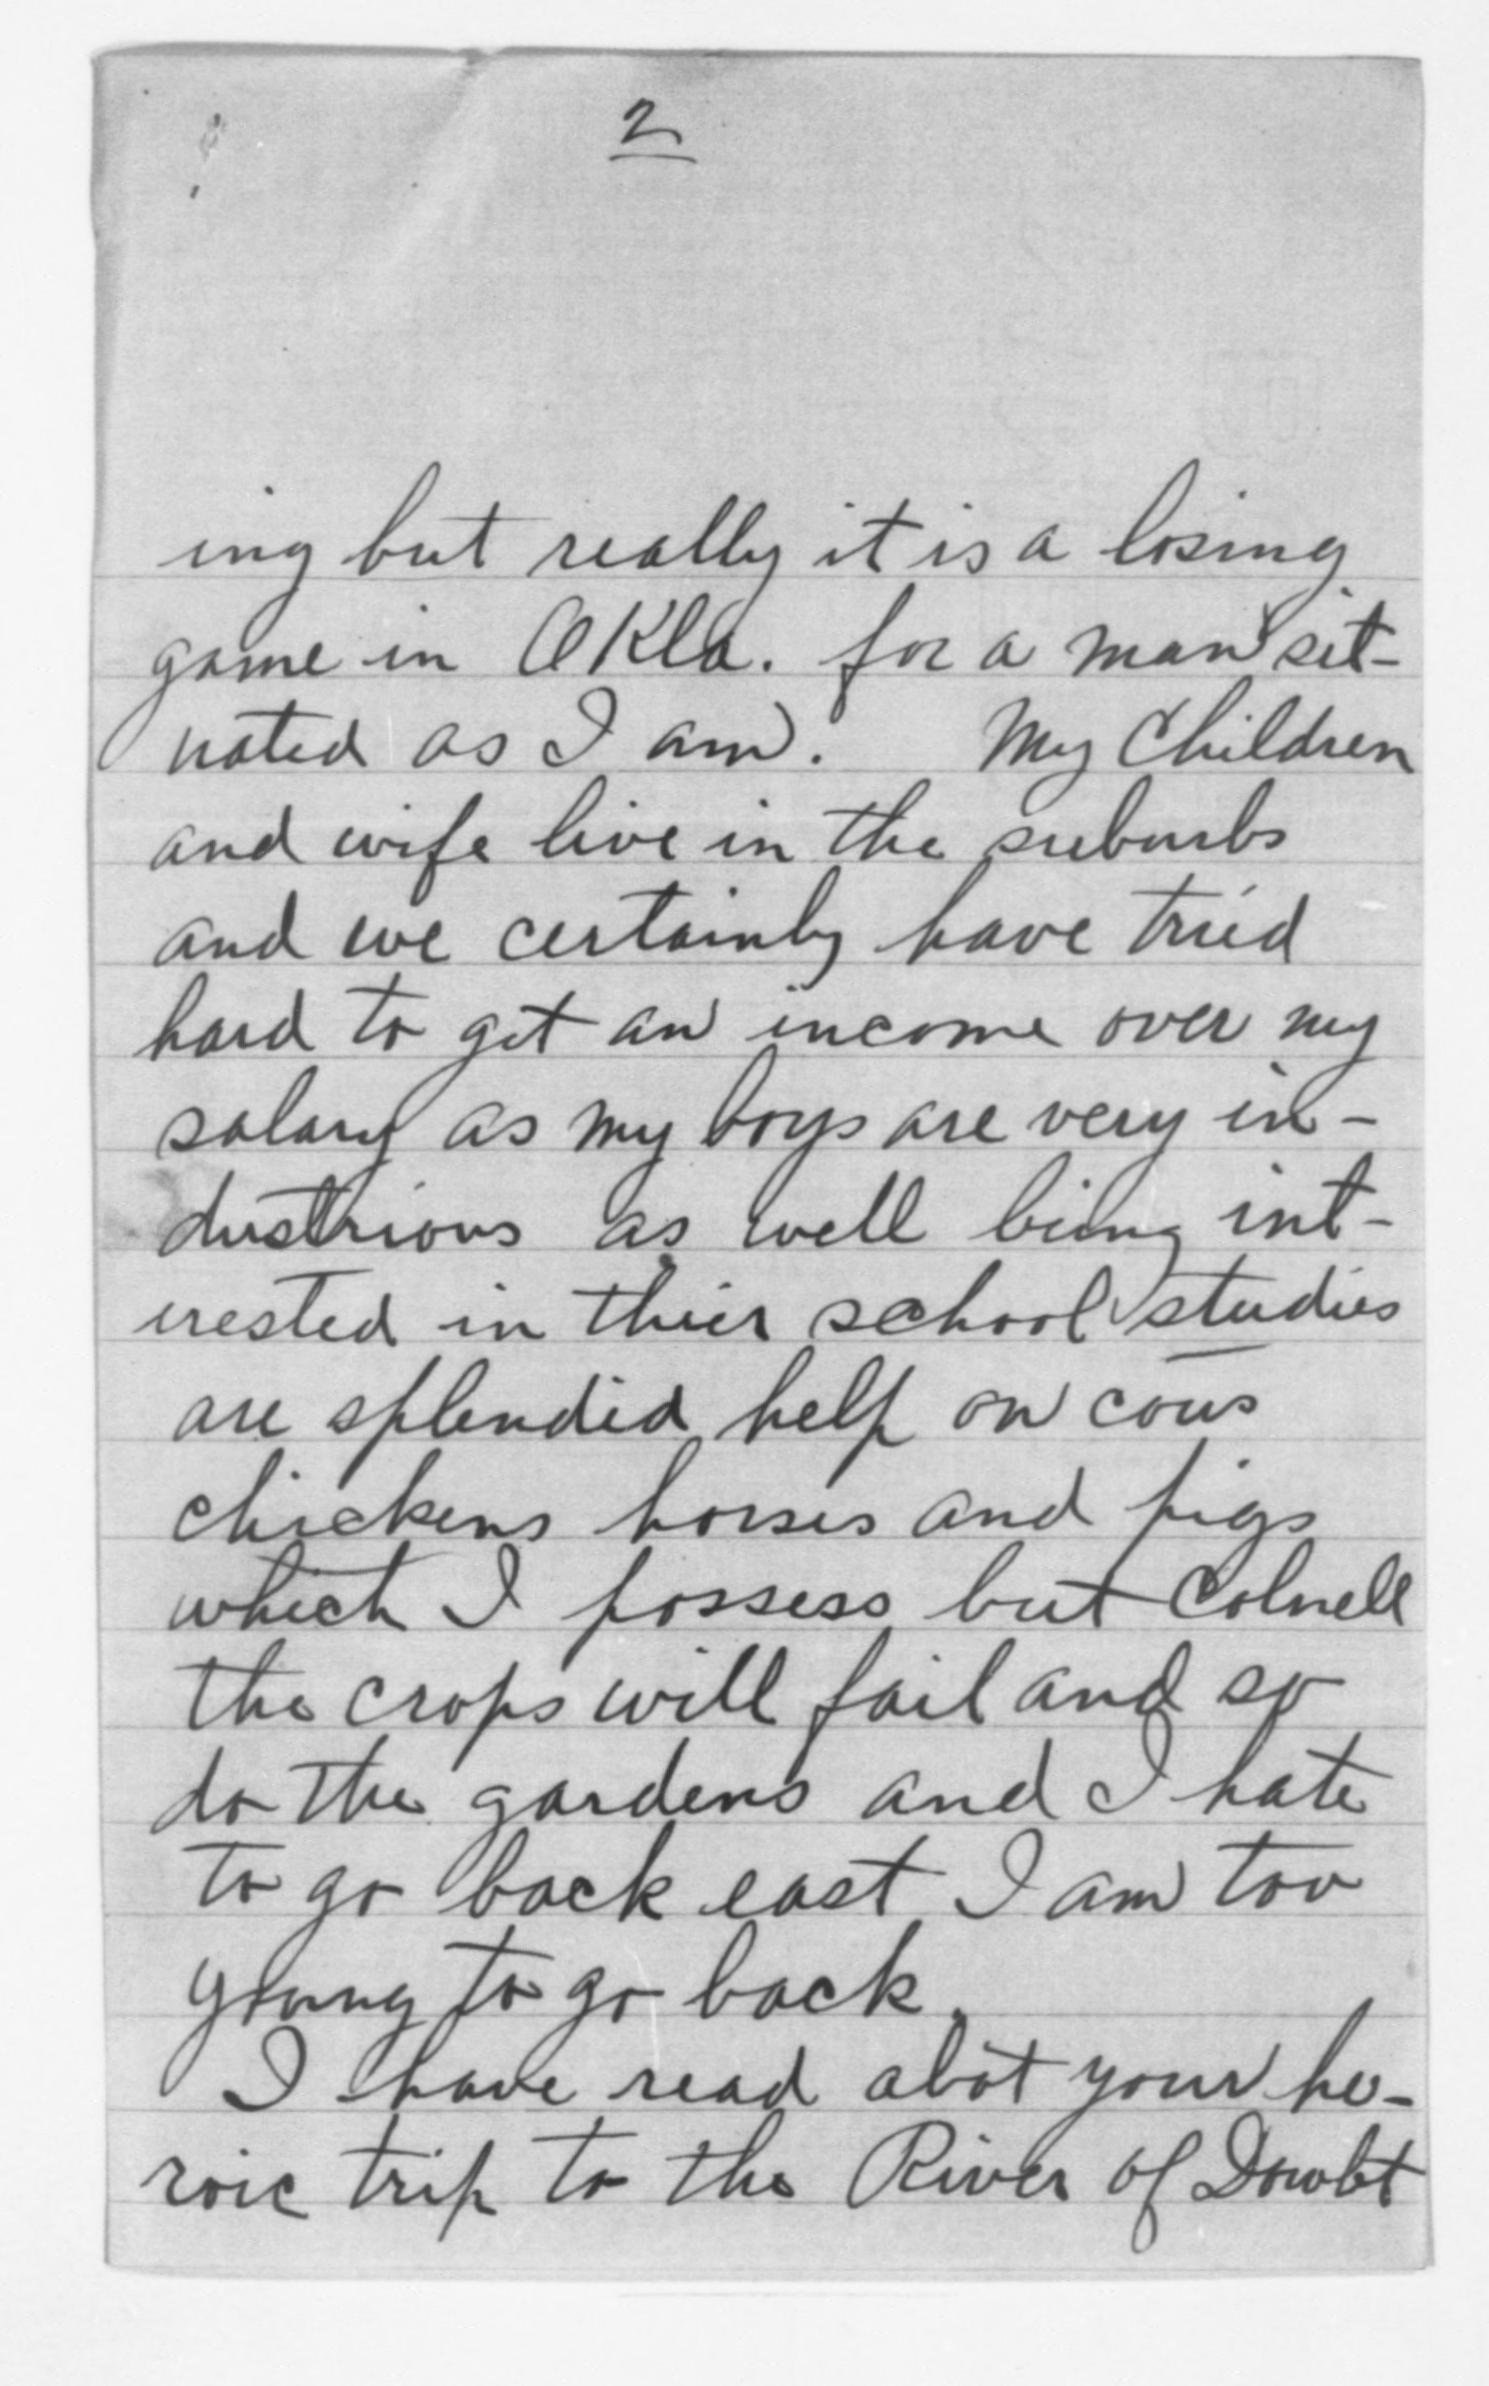 2
ing but really it is a losing
game in Okla. for a man sit-
uated as I am. My Children
and wife live in the suburbs
and we certainly have tried
hard to get an income over my
salary as my boys are very in-
dustrious as well being int-
erested in thier school studies
are splendid help on cows
chickens horses and pigs
which I possess but Colnell
the crops will fail and so
do the gardens and I hate
to go back east I am too
young to go back.
I have read abot your he-
roic trip to the River of Dowbt